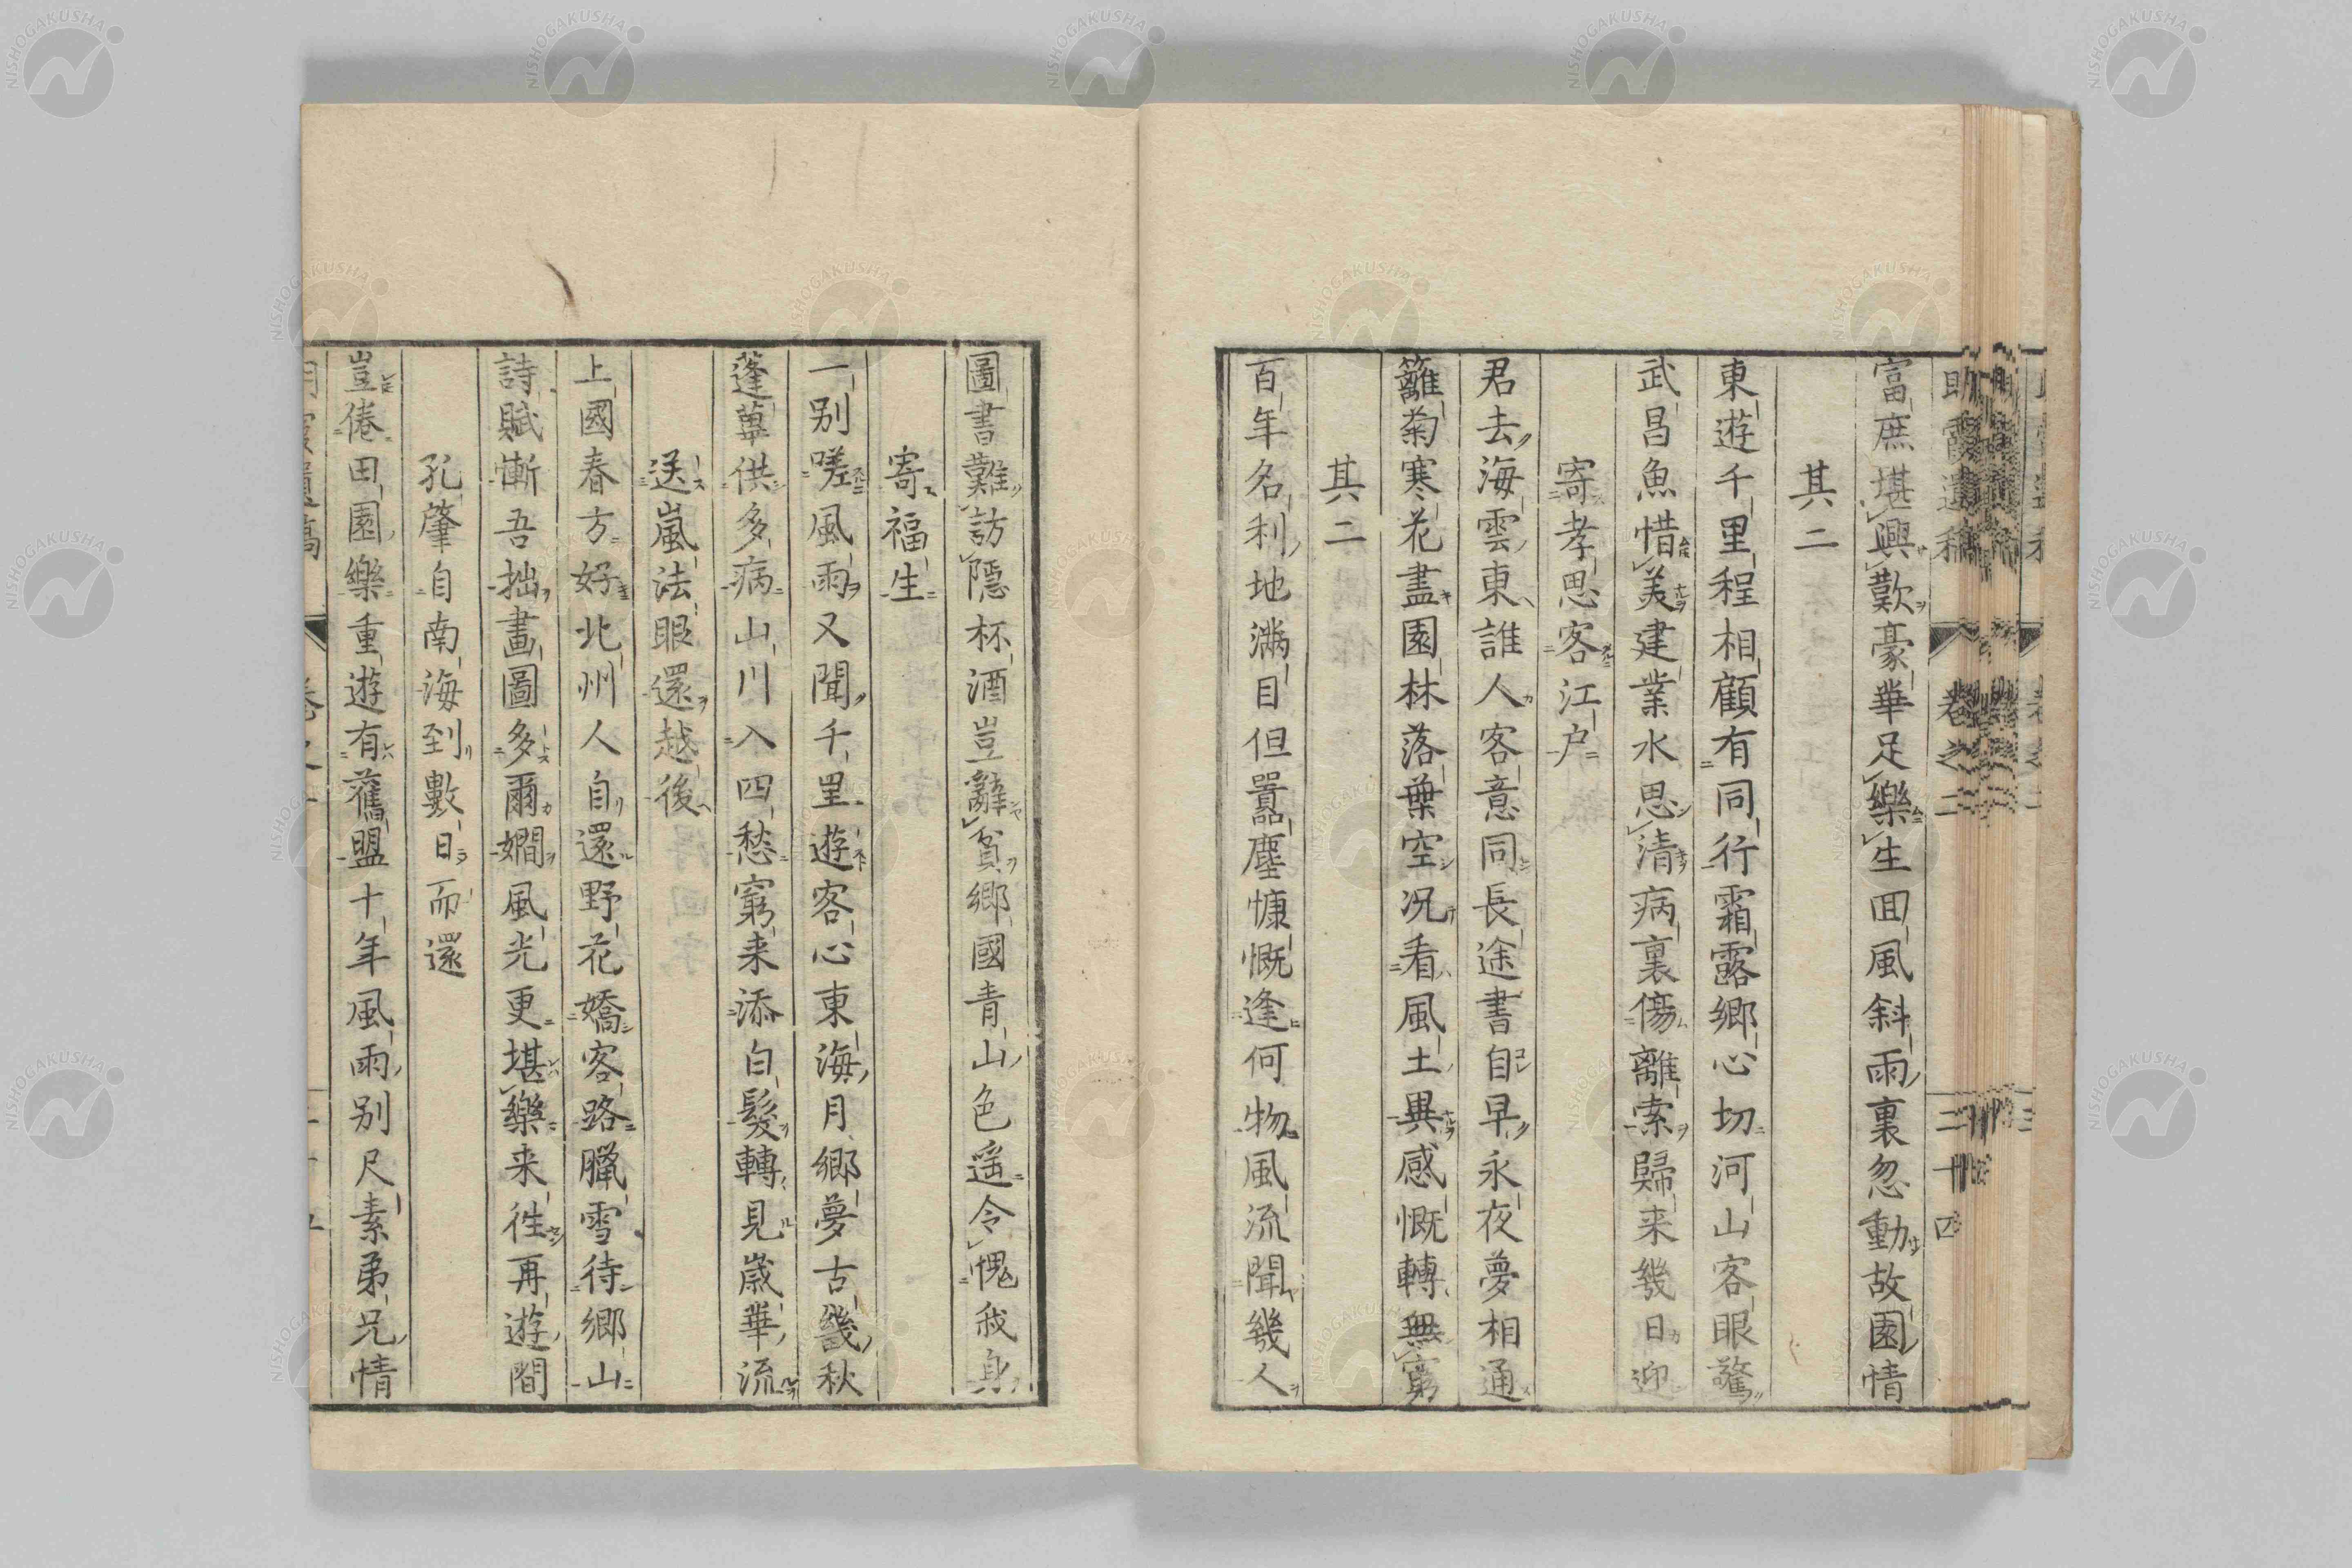 富庶堪興歎豪華足樂生回風斜雨裏忽動故園情
其二
東遊千里程相顧有同行霜露鄉心切河山客眼驚
武昌魚惜美建業水思清病裏傷離索歸来幾日迎
寄孝思客江戶
君去海雲東誰人客意同長途書自早永夜夢相通
籬菊寒花盡園林落葉空況看風土異感慨轉無窮
其二
百年名利地滿目但囂塵慷慨逢何物風流聞幾人
圖書難訪隱杯酒豈辭貧鄉國青山色遥令愧我身
寄福生
一別嗟風雨又聞千里遊客心東海月鄉夢古畿秋
蓬蓽供多病山川入四愁窮来添白髮轉見歳華流
送嵐法眼還越後
上國春方好北州人自還野花嬌客路臘雪待鄉山
詩賦慚吾拙畫圖多爾嫺風光更堪樂来徃再遊間
孔肇自南海到數日而還
豈倦田園樂重遊有舊盟十年風雨別尺素弟兄情
卷之二
二十四
NISHOGAKUSHA